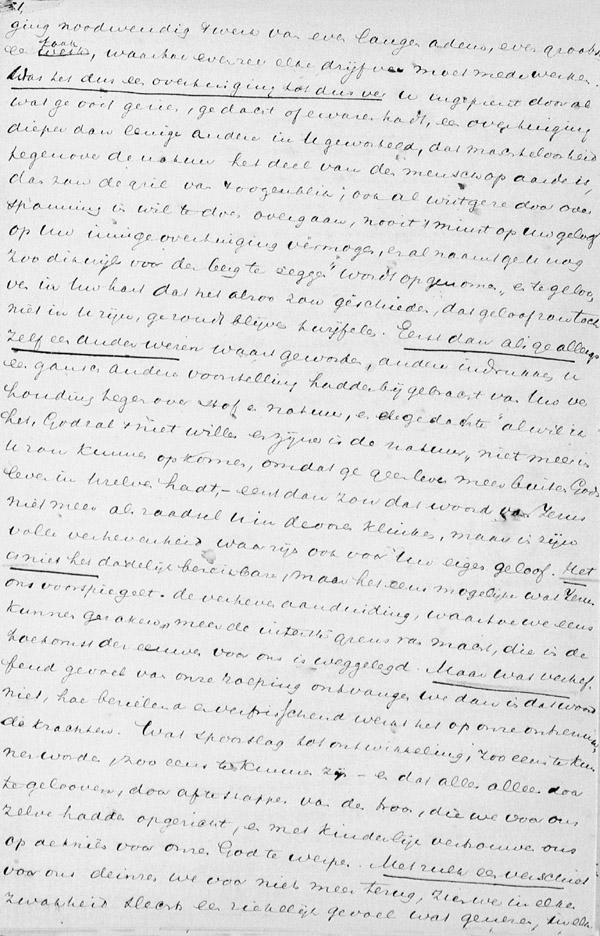 31.
ging noodwendig 't werk van een langen adem, een groote
zaak
werk, waartoe even een elke drijfveer moet medewerken.
Was het dus een overtuiging tot dus ver U ingeprent door al
wat ge ooit gezien, gedacht of ervaren hadt, een overtuiging
dieper dan eenige andere in U geworteld, dat machteloosheid
tegenover de natuur het deel van den mensch op aarde is,
dan zou de gril van 't oogenblik, ook al wist ge ze door over
spanning in wil te doen overgaan, nooit 't minst op Uw geloof
op Uw innige overtuiging vermogen, en al naamt ge U nog
zoo dikwijls voor den berg te zeggen "word opgenomen" en te geloo
ven in Uw hart dat het alzoo zou geschieden, dat geloof zou toch
niet in U zijn, ge zoudt blijven twijfelen. Eerst dan als ge allengs
zelf een ander wezen waart geworden, andere indrukken U
een gansch andere voorstelling hadden bijgebracht van Uw ver
houding tegenover stof en natuur, en de gedachte "al wil ik
het, God zal 't niet willen en zijne is de natuur", niet meer in
U zou kunnen opkomen, omdat ge geen leven meer buiten Gods
leven in U zelven hadt, - eerst dan zou dat woord van Jezus
niet meer als raadsel U in de ooren klinken, maar in zijn
volle verhevenheid waar zijn ook voor Uw eigen geloof. Het
is niet het dadelijk bereikbare, maar het eens mogelijke wat Jezus
ons voorspiegelt. de verheven aanduiding, waartoe we eens
kunnen geraken, meer de uiterste grens van macht, die in de
toekomst der eeuwen voor ons is weggelegd. Maar wat verhef-
fend gevoel van onze roeping ontvangen we dan in dat woord
niet, hoe bezielend en verfrisschend werkt het op onze ontzenuw
de krachten. Wat spoorslag tot ontwikkeling, zoo eens te kun
nen worden, zoo eens te kunnen zijn - en dat alles alleen door
te gelooven, door af te stappen van den troon, die we voor ons
zelve hadden opgericht, en met kinderlijk vertrouwen ons
op de knieën voor onzen God te werpen. Met zulk een verschiet
voor ons deinzen we voor niets meer terug, zien we in elke
zwakheid slechts een ziekelijk gevoel wat genezen,